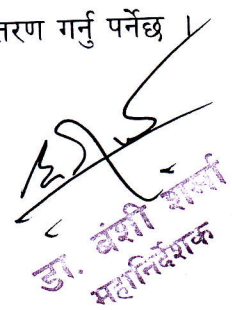 तरण गर्नु पर्नेछ ।
डा. वंशी शर्मा
महानिर्देशक